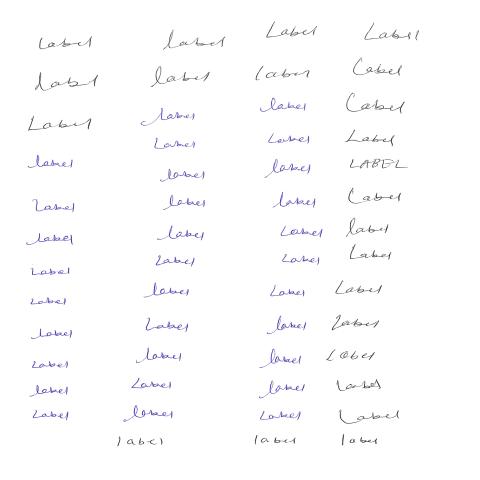 Label label Label Label
label label label Label
Label Label label Label
label Label Label Label
Label label label LABEL
label label label Label
Label label Label label
label Label Label Label
label label Label Label
Label Label label Label
label label label Label
label Label label Label
Label label Label Label
label label label